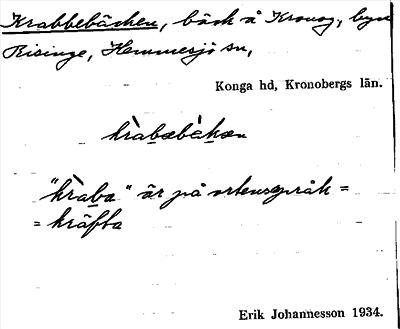 Krabbebäcken, bäck å Kronog, byn
Risinge, Hemmesjö sn,
Konga hd, Kronobergs län.
kràbabèkæn
"kràba" är på ortens språk =
= kräfta
Erik Johannesson 1934.